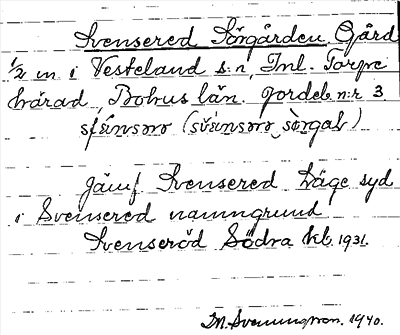 Svensered Sörgården Gård
1/2 m i Vesteland s:n, Inl. Torpe
härad, Bohus län. Jordeb. n:r 3
Jämf Svensered Läge syd
i Svensered namngrund
Svenseröd Södra kb. 1931.
D.A. Svenningson. 1940.